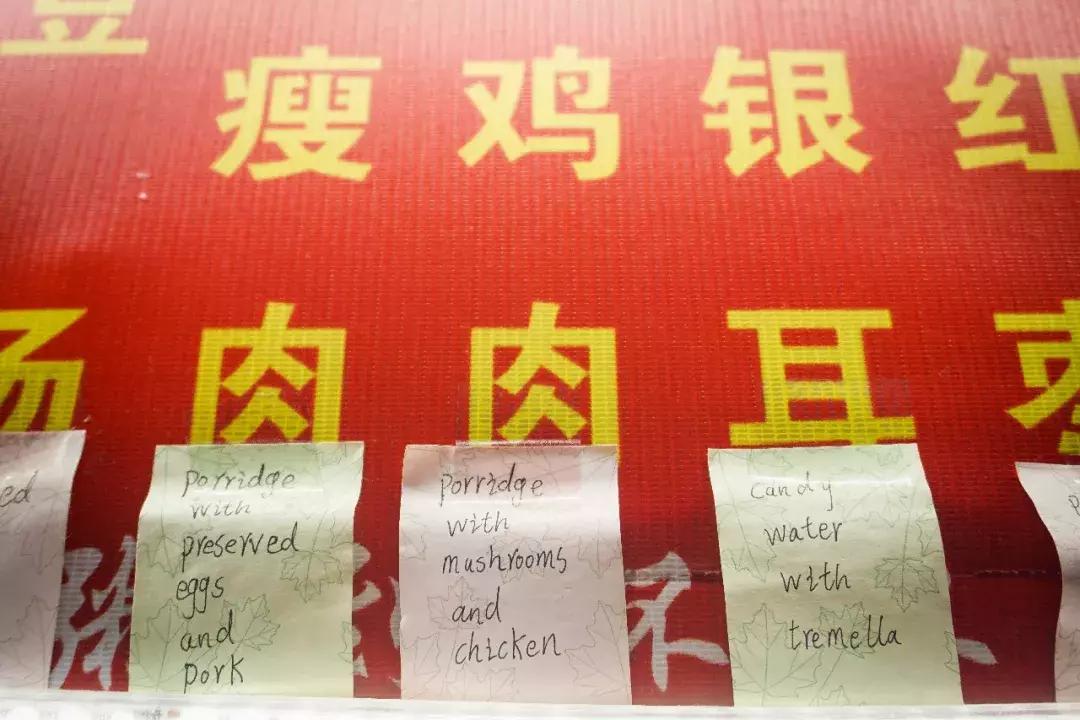 豆汤
瘦肉
鸡肉
银耳
红枣
ed
Porridge
with
preserved
eggs
and
pork
Porridge
with
mushrooms
and
chicken
Candy
water
with
tremella